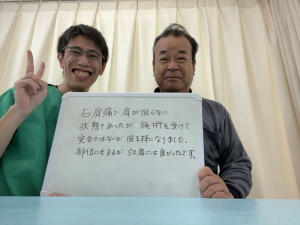 右肩痛で肩が回らない
状態であったが、施術を受けて
完全ではないが回る様になりました。
部位にもよるが、50肩には良かったです。